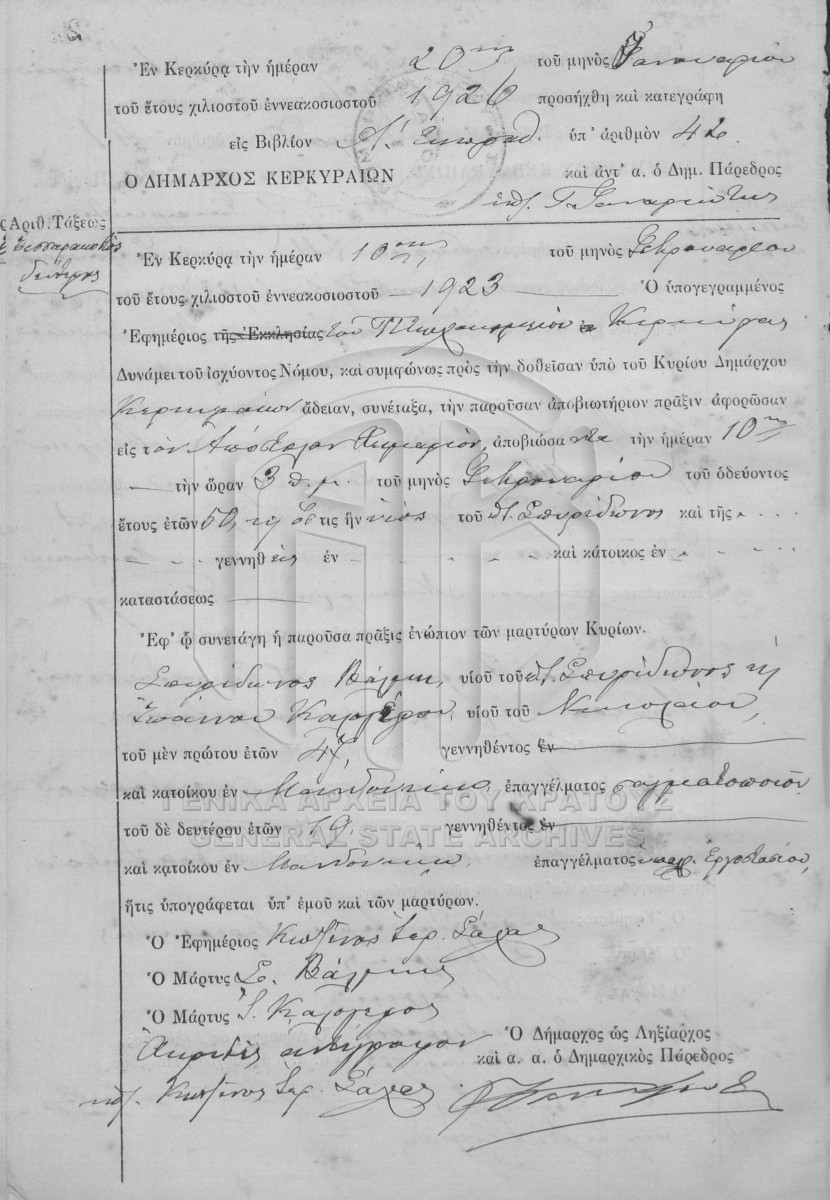 Ἐν Κερκύρᾳ τὴν ἡμέραν 20ην τοῦ μηνὸς Ἰανουαρίου
τοῦ ἔτους χιλιοστοῦ ἐννεακοσιοστοῦ 1926 προσήχθη καὶ κατεγράφη
εἰς Βιβλίον Α! ὑπ' ἀριθμὸν 42
Ο ΔΗΜΑΡΧΟΣ ΚΕΡΚΥΡΑΙΩΝ καὶ ἀντ' α. ὁ Δημ. Πάρεδρος
Ἀριθ. Τάξεως
τεσσαρακοστὸς
δεύτερος
Ἐν Κερκύρᾳ τὴν ἡμέραν 10ην τοῦ μηνὸς Φεβρουαρίου
τοῦ ἔτους χιλιοστοῦ ἐννεακοσιοστοῦ 1923 Ὁ ὑπογεγραμμένος
Ἐφημέριος τῆς Ἐκκλησίας τοῦ Πτωχοκομείου Κερκύρας
Δυνάμει τοῦ ἰσχύοντος Νόμου, καὶ συμφώνως πρὸς τὴν δοθεῖσαν ὑπὸ τοῦ Κυρίου Δημάρχου
Κερκυραίων ἄδειαν, συνέταξα, τὴν παροῦσαν ἀποβιωτήριον πρᾶξιν ἀφορῶσαν
εἰς τὸν Ἀπόστολον ἀποβιώσαντα τὴν ἡμέραν 10ην
τὴν ὥραν 3 π.μ. τοῦ μηνὸς Φεβρουαρίου τοῦ ὁδεύοντος
ἔτους ἐτῶν 50, ὅστις ἦν υἱὸς τοῦ Σπυρίδωνος καὶ τῆς
γεννηθεὶς ἐν καὶ κάτοικος ἐν
καταστάσεως
Ἐφ' ᾧ συνετάγη ἡ παροῦσα πρᾶξις ἐνώπιον τῶν μαρτύρων Κυρίων.
Σπυρίδωνος Βάλμη, υἱοῦ τοῦ Σπυρίδωνος κὴ
Ἰωάννου Καλογέρου, υἱοῦ τοῦ Νικολάου,
τοῦ μὲν πρώτου ἐτῶν 47, γεννηθέντος ἐν
καὶ κατοίκου ἐν Μανδουκίῳ ἐπαγγέλματος σαγματοποιοῦ
τοῦ δὲ δευτέρου ἐτῶν 19 γεννηθέντος ἐν
καὶ κατοίκου ἐν Μανδουκίῳ, ἐπαγγέλματος ὑπαλ. Ἐργοστασίου,
ἥτις ὑπογράφεται ὑπ' ἐμοῦ καὶ τῶν μαρτύρων.
Ὁ Ἐφημέριος Κωνζῖνος Ἱερ. Σάλας
Ὁ Μάρτυς Σ. Βάλμης
Ὁ Μάρτυς Ι. Καλογερος
Ἀκριβὲς ἀντίγραφον Ὁ Δήμαρχος ὡς Ληξίαρχος
καὶ α. α. ὁ Δημαρχικὸς Πάρεδρος
Ἱερ. Σάλας
ΓΕΝΙΚΑ ΑΡΧΕΙΑ ΤΟΥ ΚΡΑΤΟΥΣ
GENERAL STATE ARCHIVES